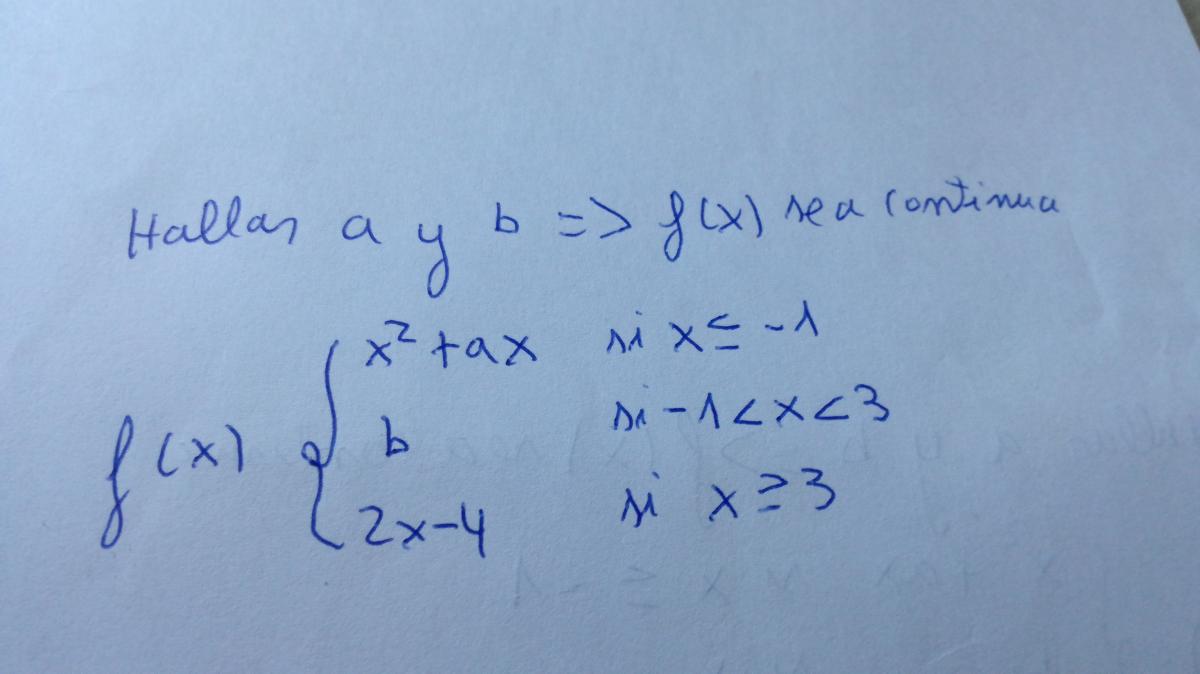 Hallar a y b => f(x) sea continua
x² + ax si x ≤ -1
f(x) { b si -1 < x < 3
2x-4 si x ≥ 3